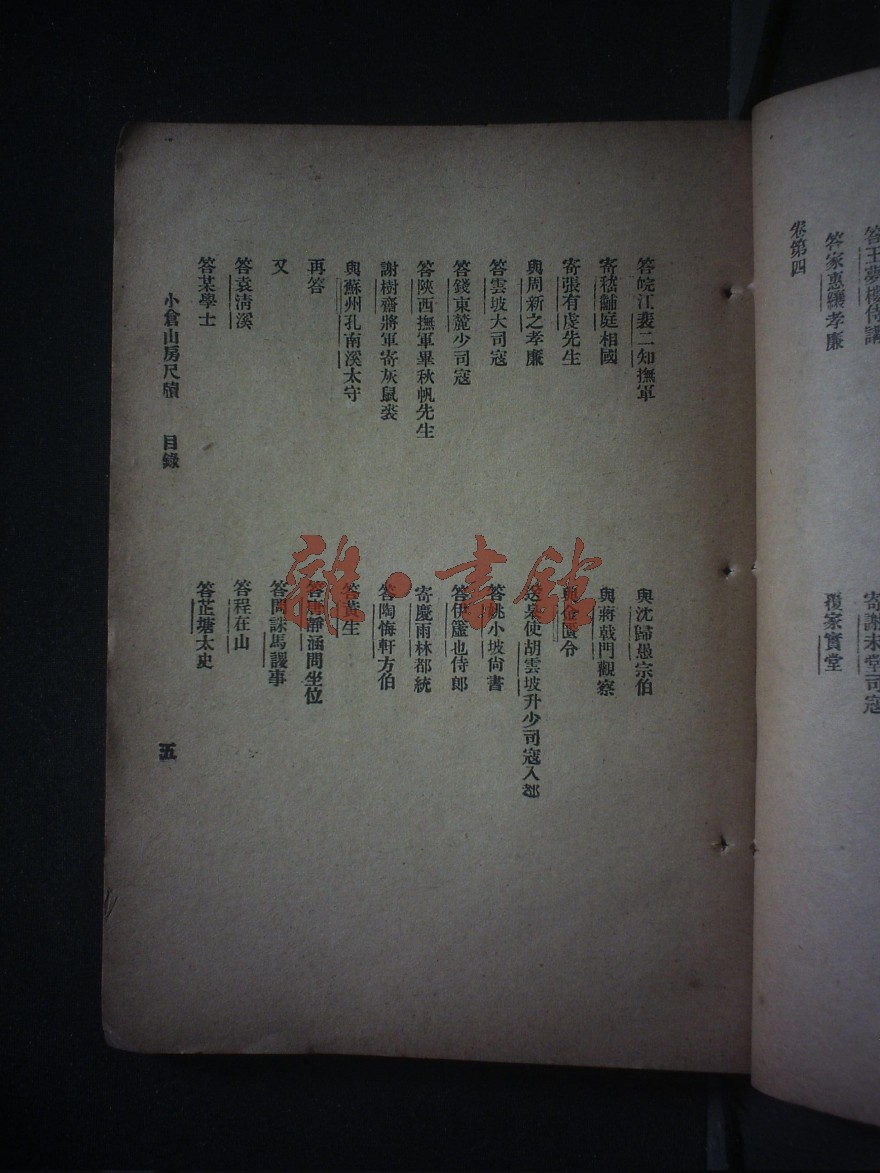 答王夢樓侍講
寄謝未堂司寇
答家惠纕孝廉
覆家實堂
卷第四
答皖江裴二知撫軍
與沈歸愚宗伯
寄嵇黼庭相國
與蔣戟門觀察
寄張有虔先生
與金匱令
與周新之孝廉
送臬使胡雲坡升少司寇入都
答雲坡大司寇
答姚小坡尚書
答錢東麓少司寇
答伊盫也侍郎
答陝西撫軍畢秋帆先生
寄慶雨林都統
謝樹齋將軍寄灰鼠裘
答陶悔軒方伯
與蘇州孔南溪太守
答黃生
再答
答唐靜涵問坐位
又
答問誅馬謖事
答袁清溪
答程在山
答某學士
答芷塘太史
小倉山房尺牘 目錄
五
雜·書館